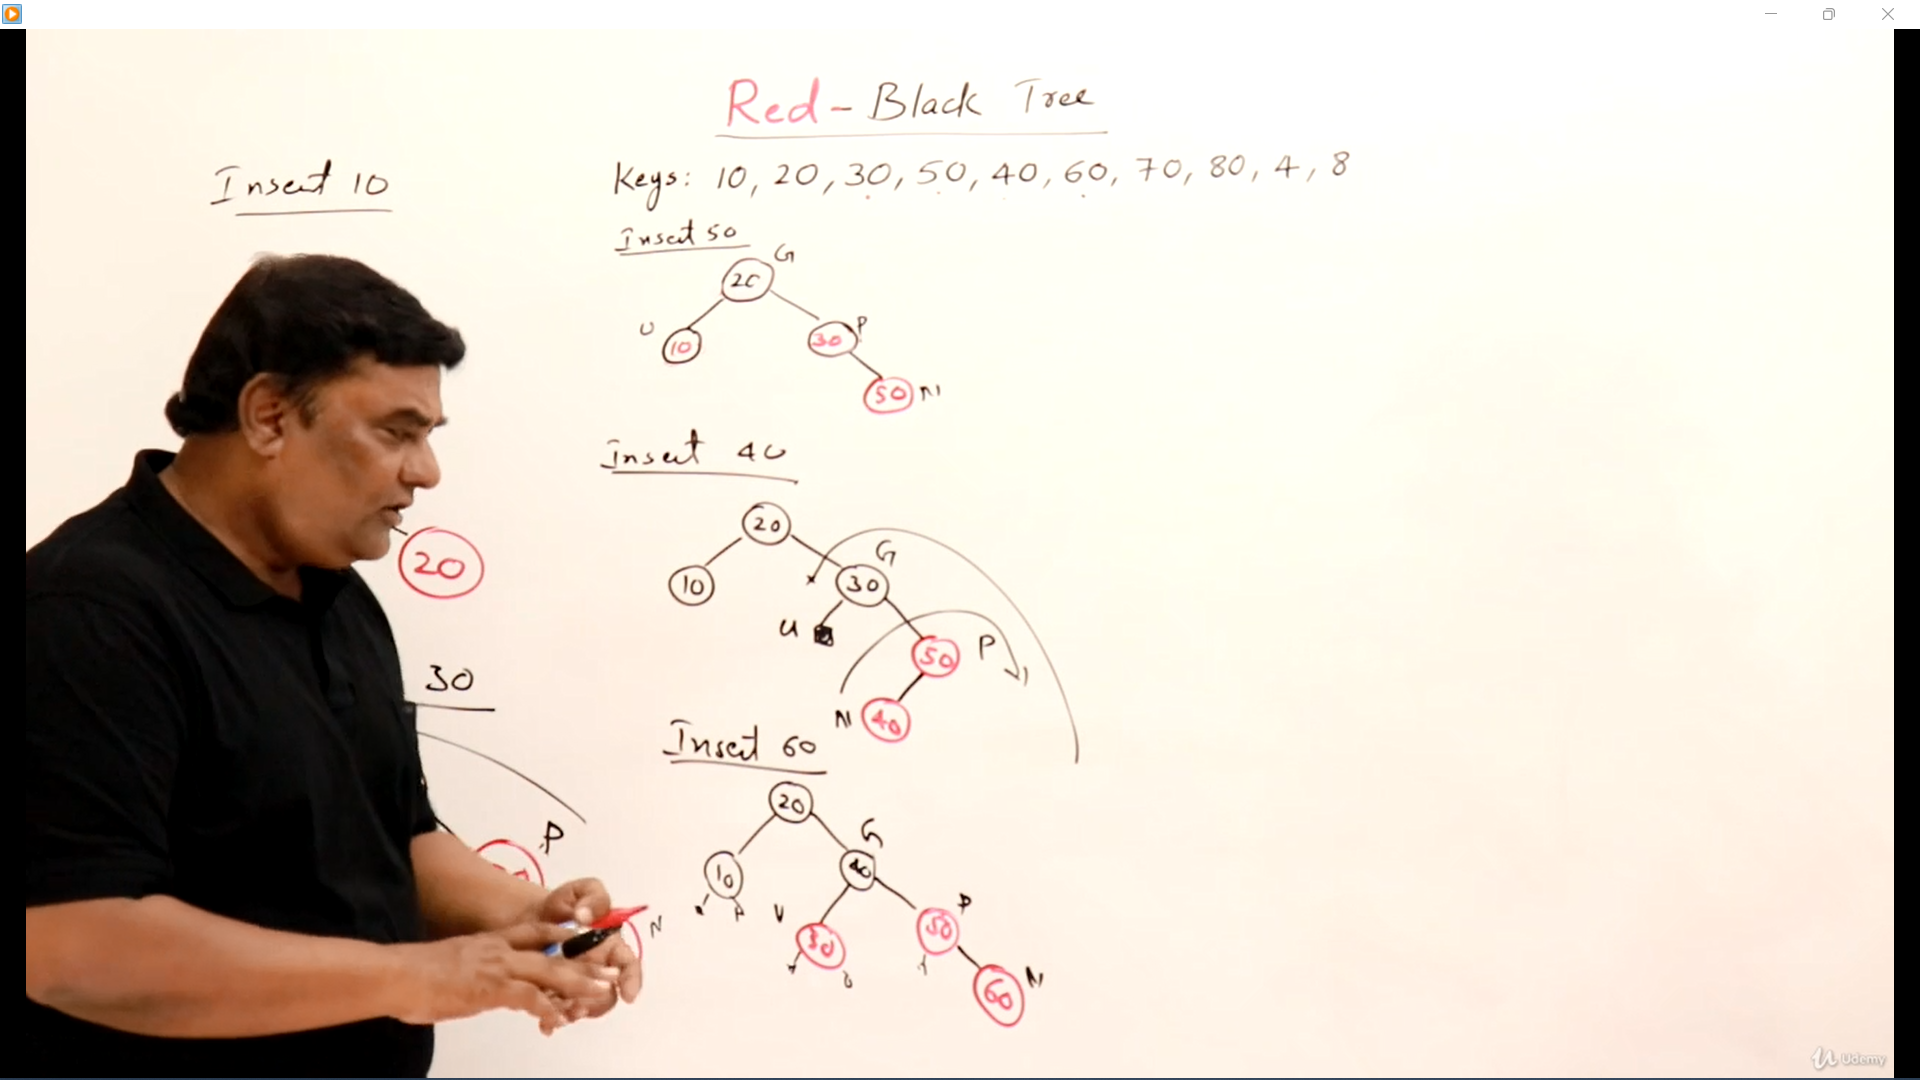 Red - Black Tree
Insert 10
Keys: 10, 20, 30, 50, 40, 60, 70, 80, 4, 8
Insert 50
G
20
U
10
30
P
50
N
Insert 40
20
G
10
30
U
50
P
N
40
20
30
P
N
Insert 60
20
G
10
40
U
30
50
P
60
N
Udemy